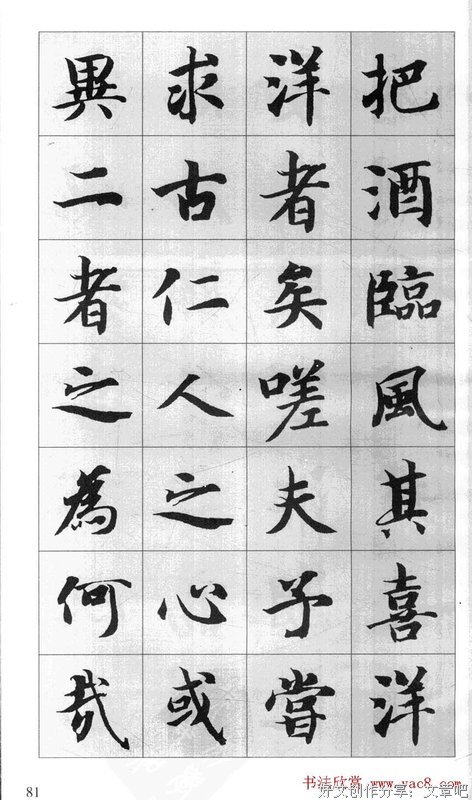 把酒臨風其喜洋
洋者矣嗟夫予嘗
求古仁人之心或
異二者之為何哉
81
书法欣赏 www.yac8.com
好文创作分享：文章吧